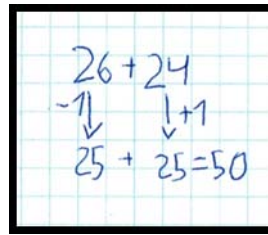 26 + 24
-1 ↓ ↓ +1
25 + 25 = 50